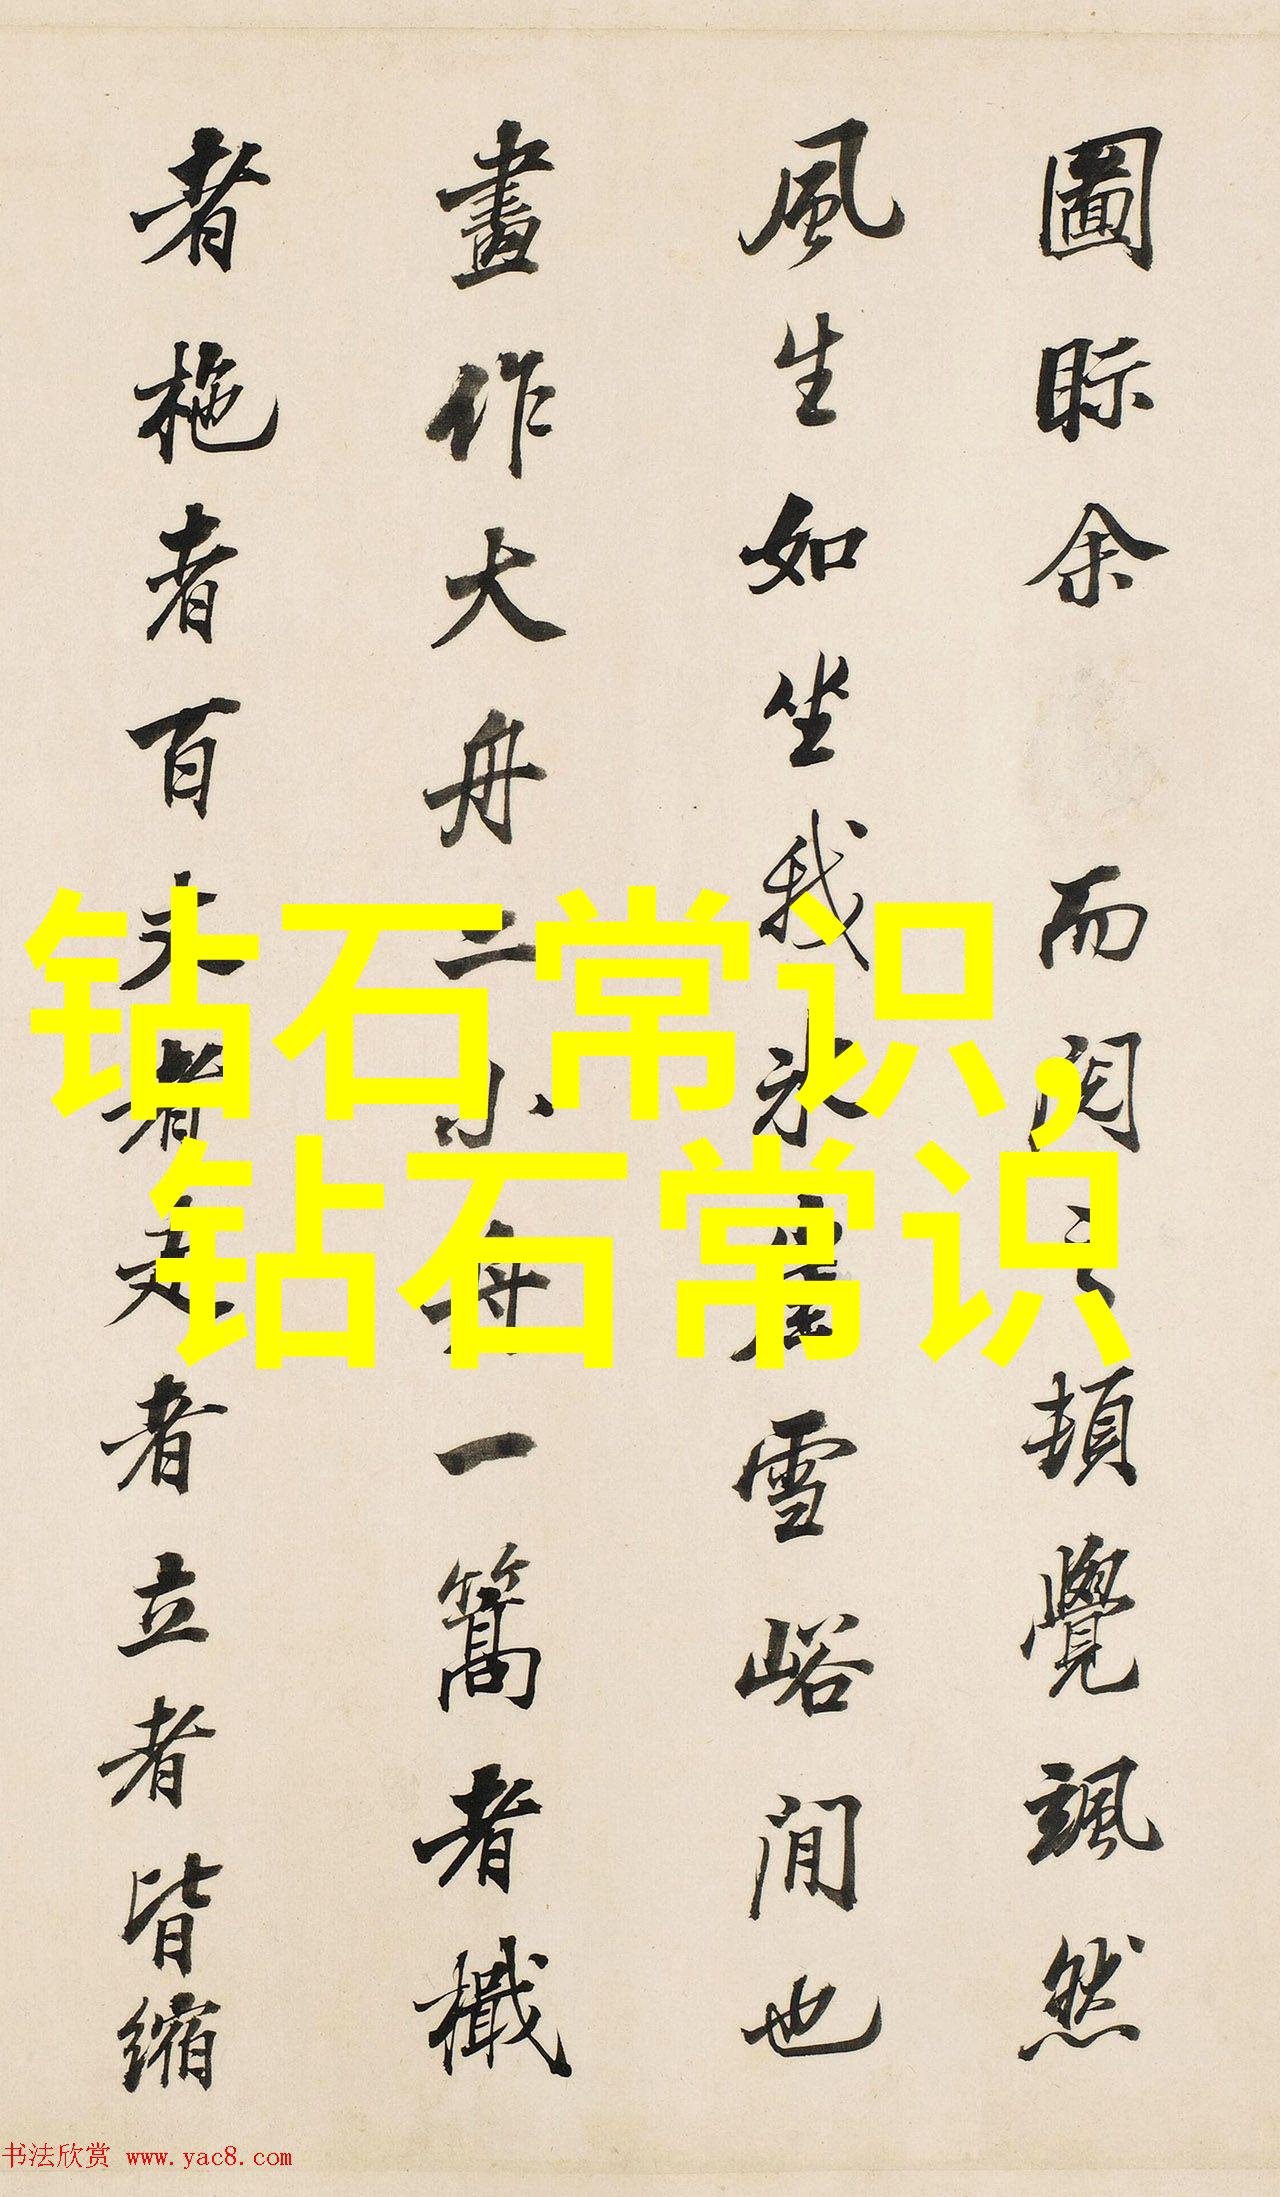 圖眎余而閱之頓覺颯然
風生如坐我冰崖雪峪間也
畫作大舟二小舟一篙者檝
者柂者百丈者䇿者立者皆縮
钻石常识，
钻石常识
书法欣赏 www.yac8.com